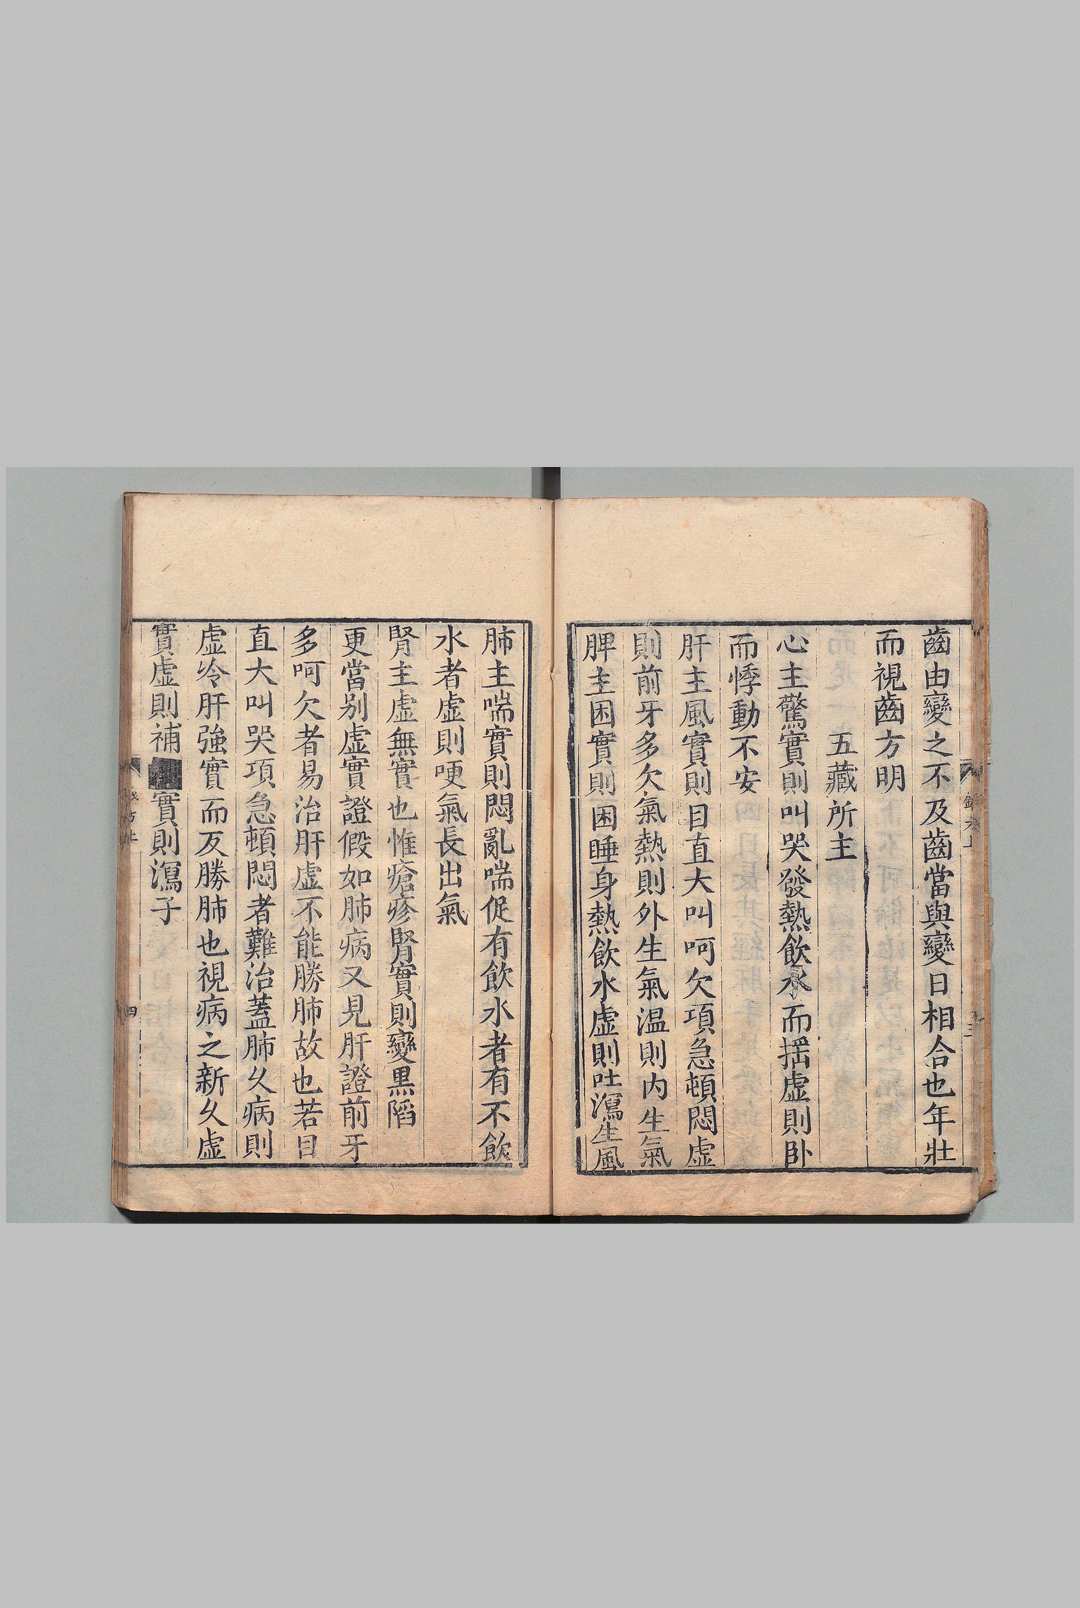 齒由變之不及齒當與變日相合也年壯
而視齒方明
五藏所主
心主驚實則叫哭發熱飲水而搐虛則卧
而悸動不安
肝主風實則目直大叫呵欠項急頓悶虛
則前牙多欠氣熱則外生氣温則内生氣
脾主困實則困睡身熱飲水虛則吐瀉生風
肺主喘實則悶亂喘促有飲水者有不飲
水者虛則哽氣長出氣
腎主虛無實也惟瘡疹腎實則變黒陷
更當别虛實證假如肺病又見肝證前牙
多呵欠者易治肝虛不能勝肺故也若目
直大叫哭項急頓悶者難治蓋肺久病則
虛冷肝強實而反勝肺也視病之新久虛
實虛則補 實則瀉子
四